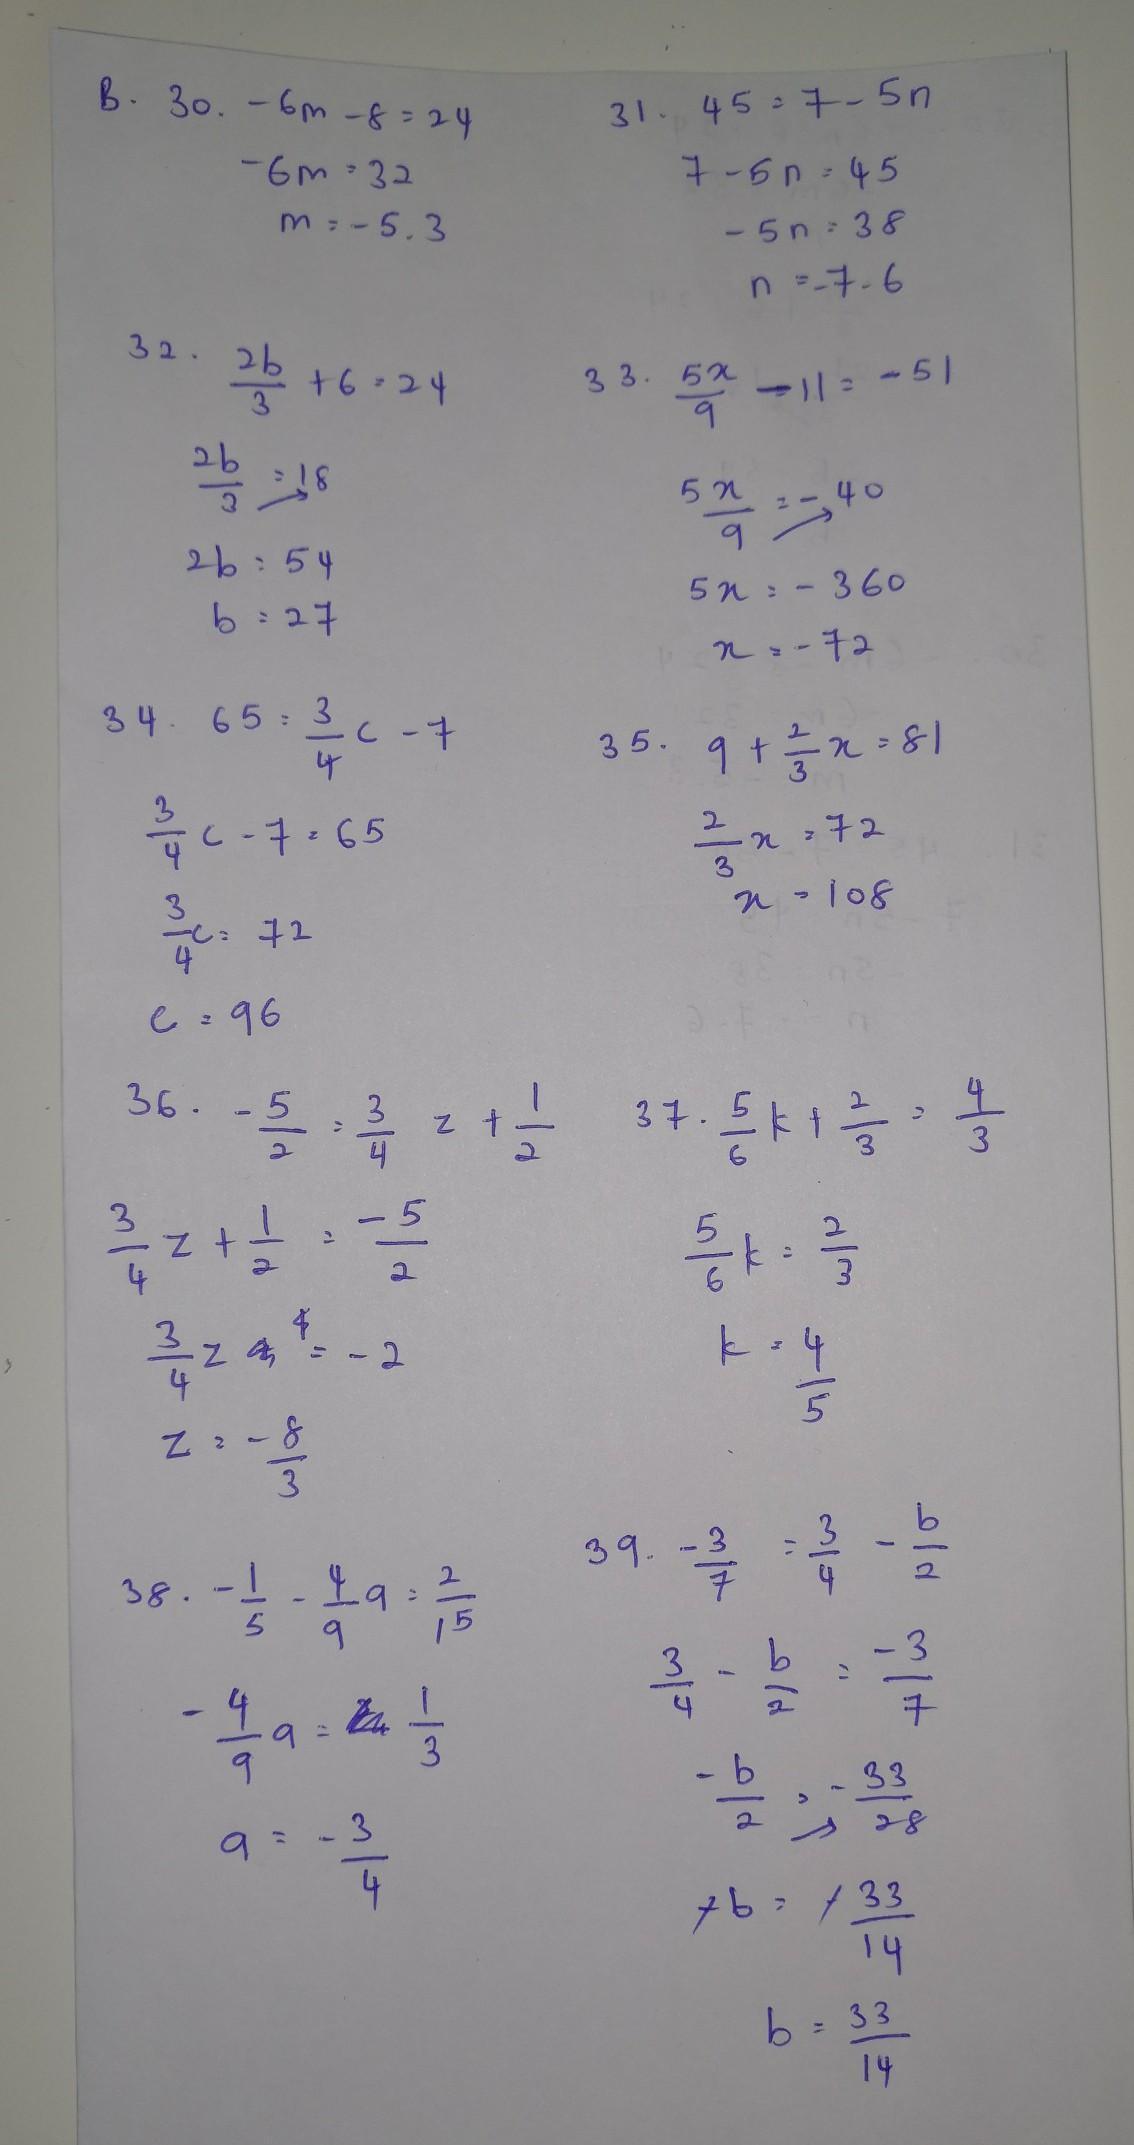 B. 30. -6m -8 = 24
-6m = 32
m = -5.3
31. 45 = 7 - 5n
7 - 5n = 45
-5n = 38
n = -7.6
32. 2b/3 + 6 = 24
2b/3 = 18
2b = 54
b = 27
33. 5x/9 - 11 = -51
5x/9 = -40
5x = -360
x = -72
34. 65 = 3/4 c - 7
3/4 c - 7 = 65
3/4 c = 72
c = 96
35. 9 + 2/3 x = 81
2/3 x = 72
x = 108
36. -5/2 = 3/4 z + 1/2
3/4 z + 1/2 = -5/2
3/4 z = -2
z = -8/3
37. 5/6 k + 2/3 = 4/3
5/6 k = 2/3
k = 4/5
38. -1/5 - 4/9 a = 2/15
-4/9 a = 1/3
a = -3/4
39. -3/7 = 3/4 - b/2
3/4 - b/2 = -3/7
-b/2 = -33/28
-b = -33/14
b = 33/14